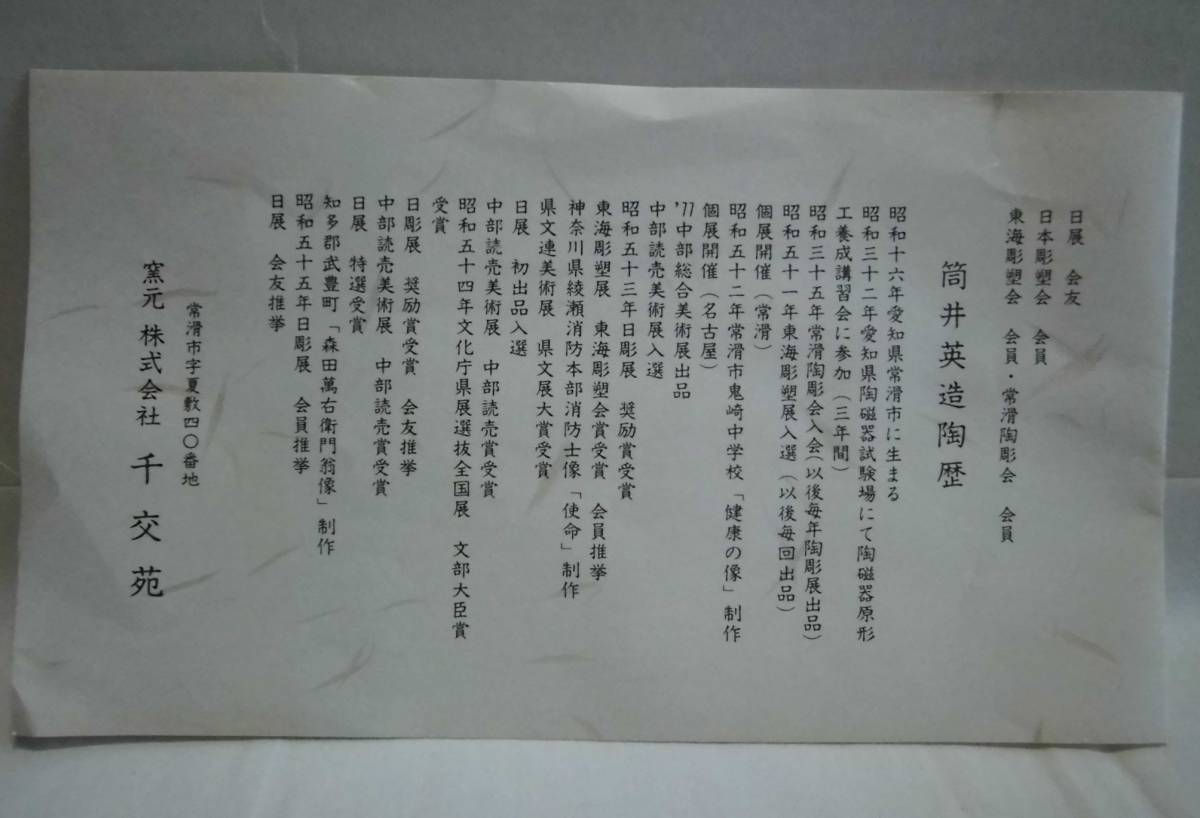 日展　会友
日本彫塑会　会員
東海彫塑会　会員・常滑陶彫会　会員
筒井英造陶歴
昭和十六年愛知県常滑市に生まる
昭和三十二年愛知県陶磁器試験場にて陶磁器原形
工養成講習会に参加（三年間）
昭和三十五年常滑陶彫会入会（以後毎年陶彫展出品）
昭和五十一年東海彫塑展入選（以後毎回出品）
個展開催（常滑）
昭和五十二年常滑市鬼崎中学校「健康の像」制作
個展開催（名古屋）
'77中部総合美術展出品
中部読売美術展入選
昭和五十三年日彫展　奨励賞受賞
東海彫塑展　東海彫塑会賞受賞　会員推挙
神奈川県綾瀬消防本部消防士像「使命」制作
県文連美術展　県文展大賞受賞
日展　初出品入選
中部読売美術展　中部読売賞受賞
昭和五十四年文化庁県展選抜全国展　文部大臣賞
受賞
日彫展　奨励賞受賞　会友推挙
中部読売美術展　中部読売賞受賞
日展　特選受賞
知多郡武豊町「森田萬右衛門翁像」制作
昭和五十五年日彫展　会員推挙
日展　会友推挙
常滑市字夏敷四〇番地
窯元　株式会社　千交苑